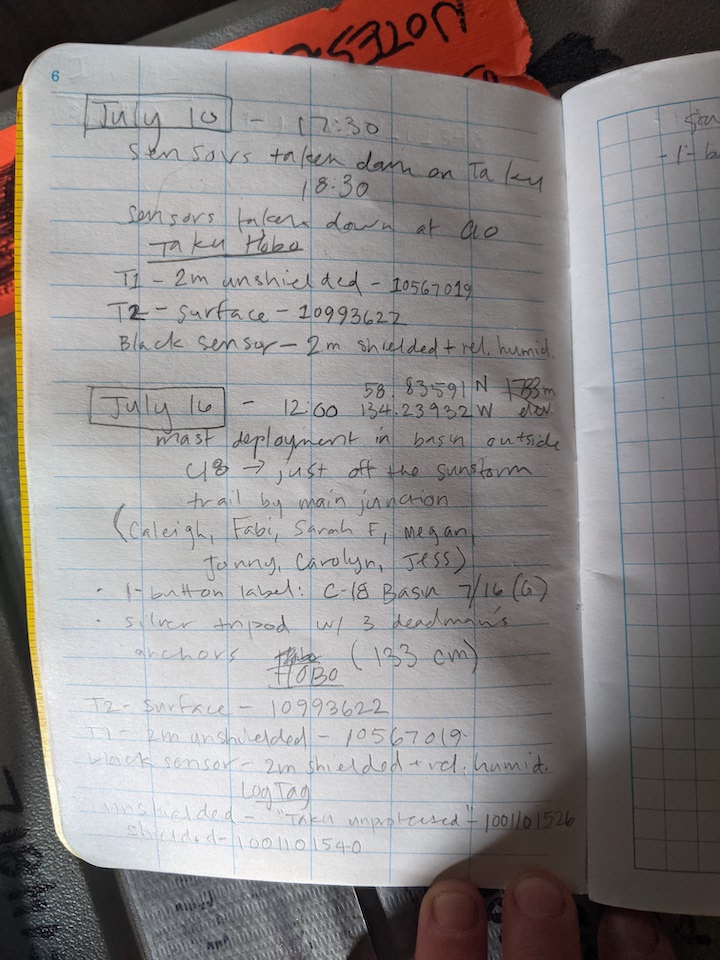 6
July 10 - 17:30
Sensors taken down on Taku
18:30
Sensors taken down at
Taku Hobo
T1 - 2m unshielded - 10567019
T2 - surface - 10993622
Black sensor - 2m shielded + rel. humid.
58.83591 N 1733m
July 16 - 12:00 134.23932 W elev.
mast deployment in basin outside
C18 → just off the sunstorm
trail by main junction
(Caleigh, Fabi, Sarah F, Megan,
Jonny, Carolyn, Jess)
· 1-button label: C-18 Basin 7/16 (G)
· silver tripod w/ 3 deadman's
anchors (133 cm)
HOBO
T2 - surface - 10993622
T1 - 2m unshielded - 10567019
black sensor - 2m shielded + rel. humid.
LogTag
unshielded - "Taku " - 1001101526
shielded - 1001101540